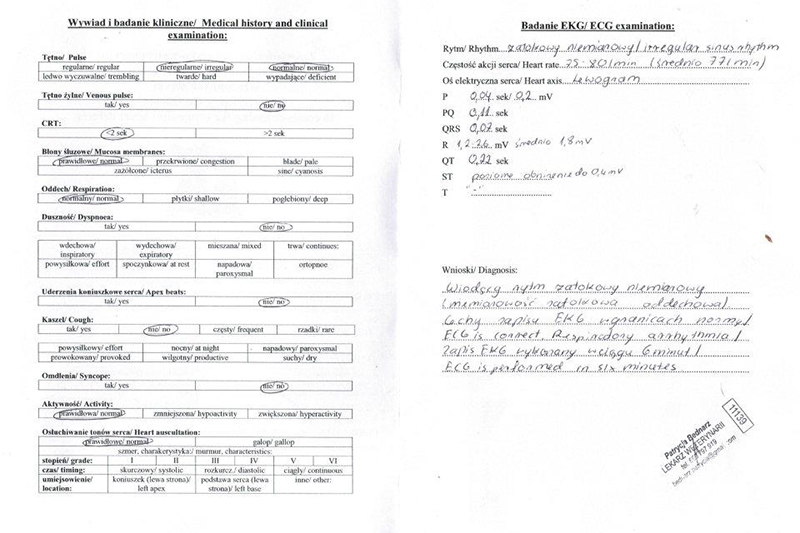 Wywiad i badanie kliniczne/ Medical history and clinical
examination:
Tętno/ Pulse
regularne/ regular nieregularne/ irregular normalne/ normal
ledwo wyczuwalne/ trembling twarde/ hard wypadające/ deficient
Tętno żylne/ Venous pulse:
tak/ yes nie/ no
CRT:
<2 sek >2 sek
Błony śluzowe/ Mucosa membranes:
prawidłowe/ normal przekrwione/ congestion blade/ pale
zażółcone/ icterus sine/ cyanosis
Oddech/ Respiration:
normalny/ normal płytki/ shallow pogłębiony/ deep
Duszność/ Dyspnoea:
tak/ yes nie/ no
wdechowa/ inspiratory wydechowa/ expiratory mieszana/ mixed trwa/ continues:
powysiłkowa/ effort spoczynkowa/ at rest napadowa/ paroxysmal ortopnoe
Uderzenia koniuszkowe serca/ Apex beats:
tak/ yes nie/ no
Kaszel/ Cough:
tak/ yes nie/ no częsty/ frequent rzadki/ rare
powysiłkowy/ effort nocny/ at night napadowy/ paroxysmal
prowokowany/ provoked wilgotny/ productive suchy/ dry
Omdlenia/ Syncope:
tak/ yes nie/ no
Aktywność/ Activity:
prawidłowa/ normal zmniejszona/ hypoactivity zwiększona/ hyperactivity
Osłuchiwanie tonów serca/ Heart auscultation:
prawidłowe/ normal galop/ gallop
szmer, charakerystyka:/ murmur, characteristics:
stopień/ grade: I II III IV V VI
czas/ timing: skurczowy/ systolic rozkurcz./ diastolic ciągły/ continuous
umiejsowienie/ location: koniuszek (lewa strona)/ left apex podstawa serca (lewa strona)/ left base inne/ other:
Badanie EKG/ ECG examination:
Rytm/ Rhythm zatokowy niemiarowy/ irregular sinus rhythm
Częstość akcji serca/ Heart rate 75-80/min (średnio 77/min)
Oś elektryczna serca/ Heart axis Lewogram
P 0,04 sek/ 0,2 mV
PQ 0,11 sek
QRS 0,07 sek
R 1,2-2,6 mV średnio 1,8 mV
QT 0,22 sek
ST poziome obniżenie do 0,4 mV
T "-"
Wnioski/ Diagnosis:
Wiodący rytm zatokowy niemiarowy
(niemiarowość zatokowa oddechowa).
Cechy zapisu EKG w granicach normy/
ECG is correct. Respiratory arrhythmia/
Zapis EKG wykonany w ciągu 6 minut/
ECG is performed in six minutes
11139
Patrycja Bednarz
LEKARZ WETERYNARII